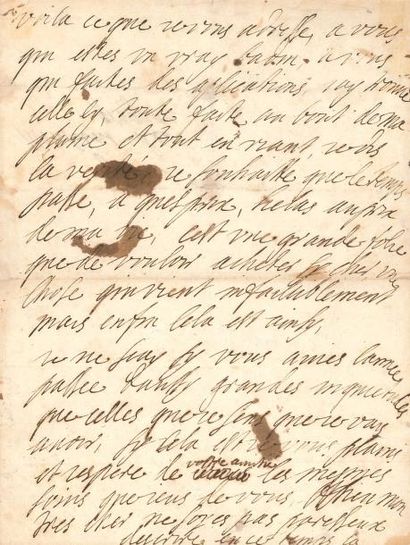 voila ce que ie vous adresse, a vous
qui estes un vray
qui faites des aplications, iay trouué
celle cy toute faite au bout de ma
plume et tout en riant, vois
la verité, ie souhaitte que le temps
passe, a quel prix, helas au prix
de ma vie, c'est une grande folie
que de vouloir acheter sy cher une
chose qui vient infailliblement
mais enfin cela est ainsy,
ie ne scay sy vous aviés l'année
passée d'aussy grandes
que celles que ie sens que ie vous
avoir, sy cela est ie vous plains
et iespere de vostre amitié les mesmes
soins que iens de vous, mon
tres cher ne soyes pas paresseux